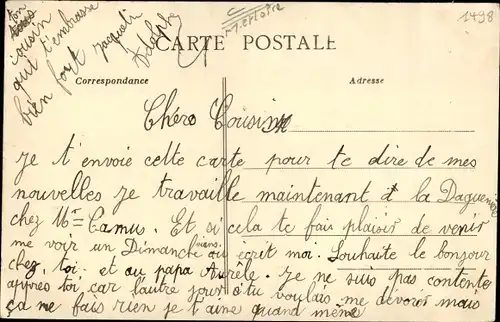 1498
M. et Loire
CARTE POSTALE
Correspondance
Adresse
Chère Cousine
Je t'envoie cette carte pour te dire de mes
nouvelles Je travaille maintenant à la Daguenière
chez Mr Camus. Et si cela te fais plaisir de venir
me voir un Dimanche écrit moi. Souhaite le bonjour
chez toi, et au papa Aurèle. Je ne suis pas contente
appres toi car lautre jour s'tu voulais me dévorer mais
ça me fais rien je t'aine quand même
ton
cousin
qui t'embrasse
bien fort
Adolphe